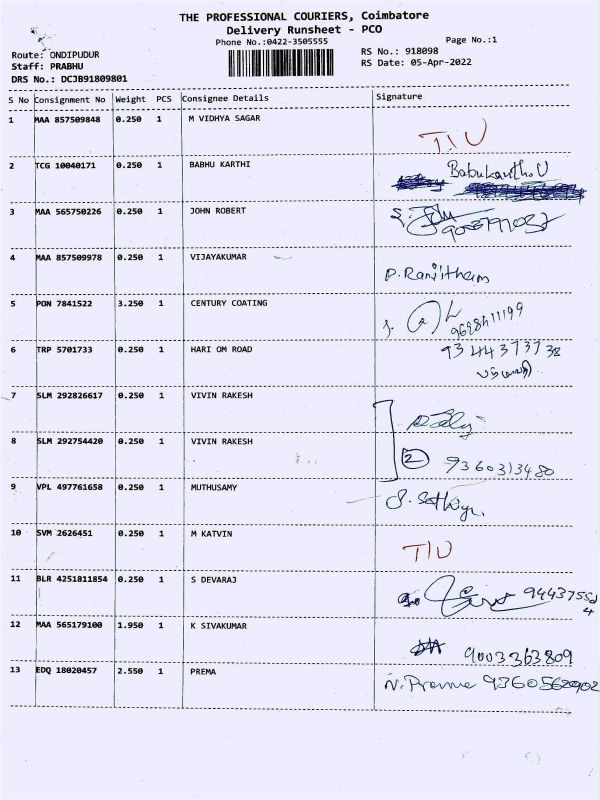 THE PROFESSIONAL COURIERS, Coimbatore
Delivery Runsheet - PCO
Phone No.:0422-3505555
Page No.:1
Route: ONDIPUDUR
Staff: PRABHU
DRS No.: DCJB91809801
RS No.: 918098
RS Date: 05-Apr-2022
S No Consignment No Weight PCS Consignee Details Signature
1 MAA 857509848 0.250 1 M VIDHYA SAGAR
T/U
2 TCG 10040171 0.250 1 BABHU KARTHI
Babukarthi.U
3 MAA 565750226 0.250 1 JOHN ROBERT
4 MAA 857509978 0.250 1 VIJAYAKUMAR
P. Ranjitham
5 PON 7841522 3.250 1 CENTURY COATING
6 TRP 5701733 0.250 1 HARI OM ROAD
9344373738
7 SLM 292826617 0.250 1 VIVIN RAKESH
8 SLM 292754420 0.250 1 VIVIN RAKESH
2 9360313480
9 VPL 497761658 0.250 1 MUTHUSAMY
10 SVM 2626451 0.250 1 M KATVIN
T/U
11 BLR 4251811854 0.250 1 S DEVARAJ
12 MAA 565179100 1.950 1 K SIVAKUMAR
9003363809
13 EDQ 18020457 2.550 1 PREMA
N. Prema